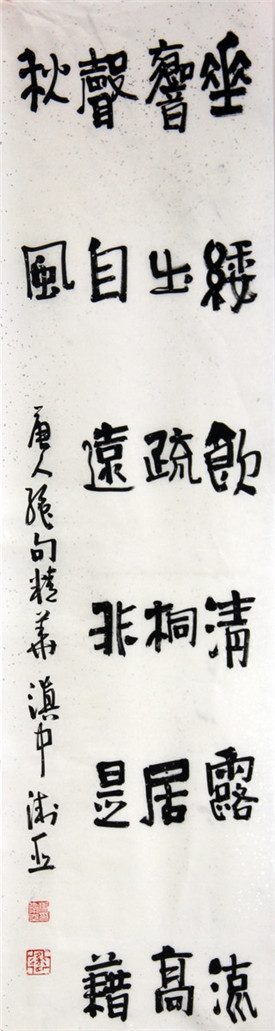 垂緌飲清露流
響出疏桐居高
聲自遠非是藉
秋風
唐人絶句精華滇中